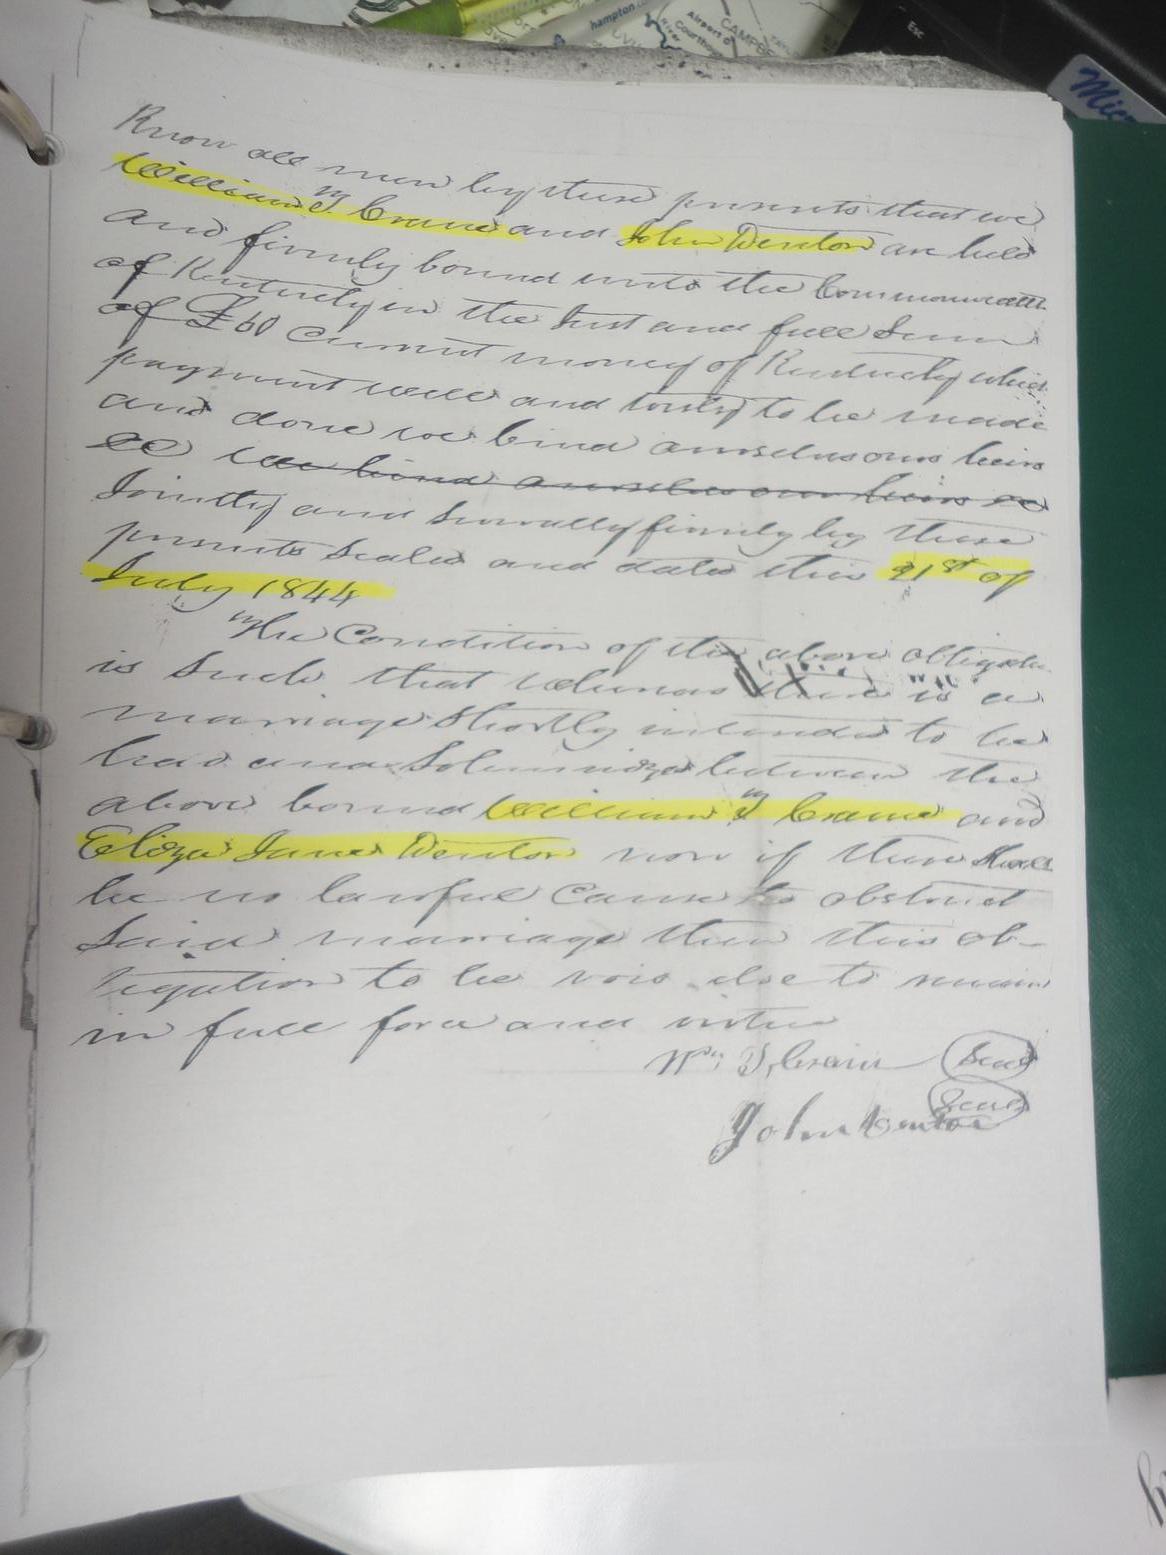 hampton
Airport
Courthouse
CAMPBE
Esc
Know all men by these presents that we
William T. Crane and John Denton are held
and firmly bound unto the Commonwealth
of Kentucky in the Just and full Sum
of £50 current money of Kentucky which
payment well and truly to be made
and done we bind ourselves our heirs
&c we bind ourselves our heirs &c
Jointly and Severally firmly by these
presents Sealed and dated this 21st of
July 1844
The Condition of the above obligation
is Such that whereas there is a
marriage Shortly intended to be
had and Solemnized between the
above bound William T Crane and
Eliza Jane Denton now if there Shall
be no lawful Cause to obstruct
Said marriage then this ob-
ligation to be void else to remain
in full force and virtue
Wm T. Crain Seal
Seal
John Denton